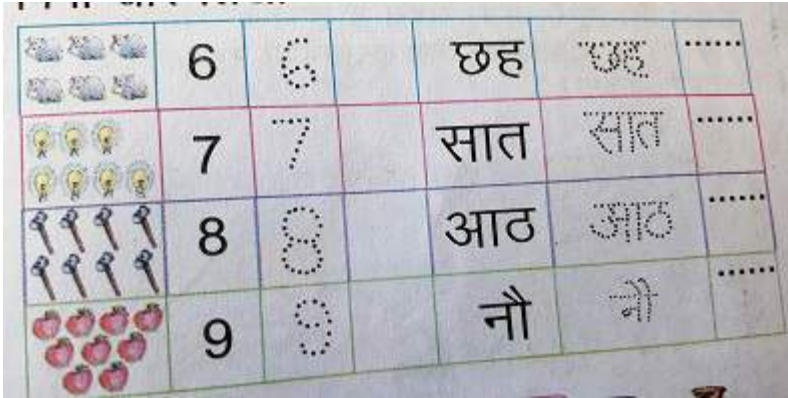 6 6 छह छह ......
7 7 सात सात ......
8 8 आठ आठ ......
9 9 नौ नौ ......